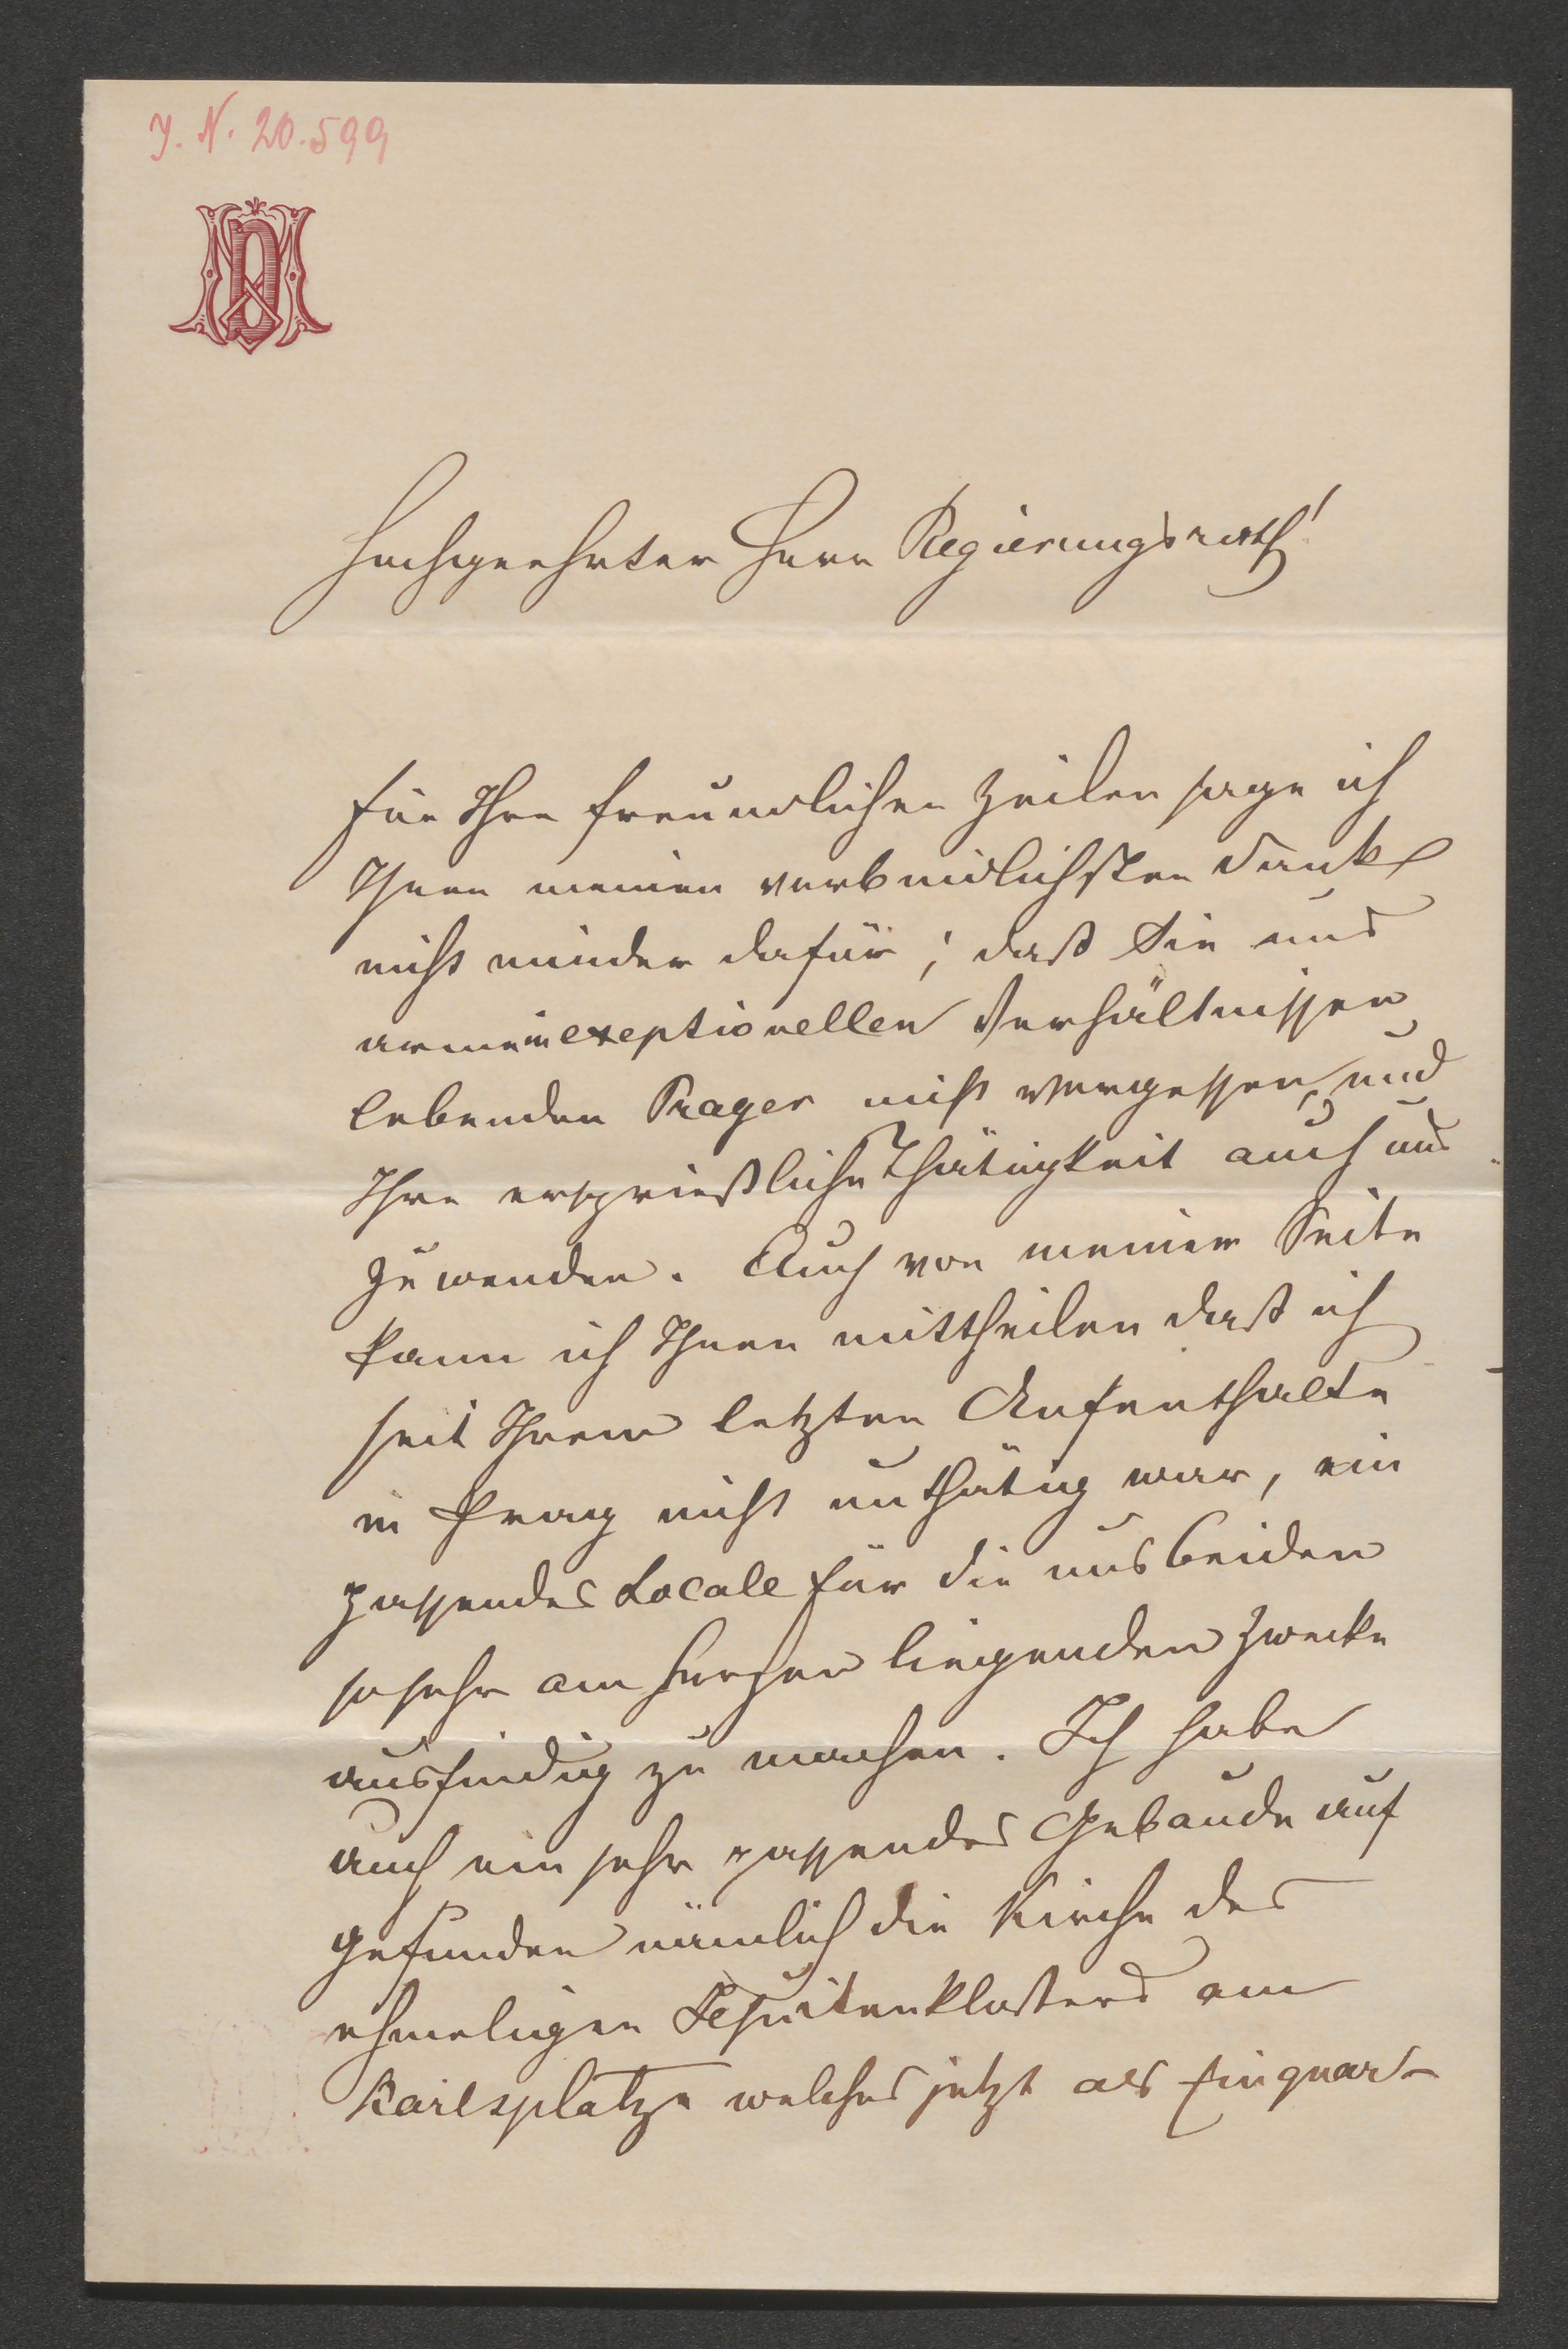 J. N. 20.599
Hochgeehrter Herr Regierungsrath!
für Ihre freundlichen Zeilen sage ich
Ihnen meinen verbindlichsten Dank
nicht minder dafür; daß Sie uns
armen in exeptionellen Verhältnissen
lebenden Prager nicht vergessen, und
Ihre ersprießliche Thätigkeit auch uns
zuwenden. Auch von meiner Seite
kann ich Ihnen mittheilen daß ich
seit Ihrem letzten Aufenthalte
in Prag nicht unthätig war, ein
passendes Locale für die uns beiden
so sehr am Herzen liegenden Zwecke
ausfindig zu machen. Ich habe
auch ein sehr passendes Gebäude auf
gefunden nämlich die Kirche des
ehmaligen Jesuitenklosters am
Karlsplatze welches jetzt als Einquar-